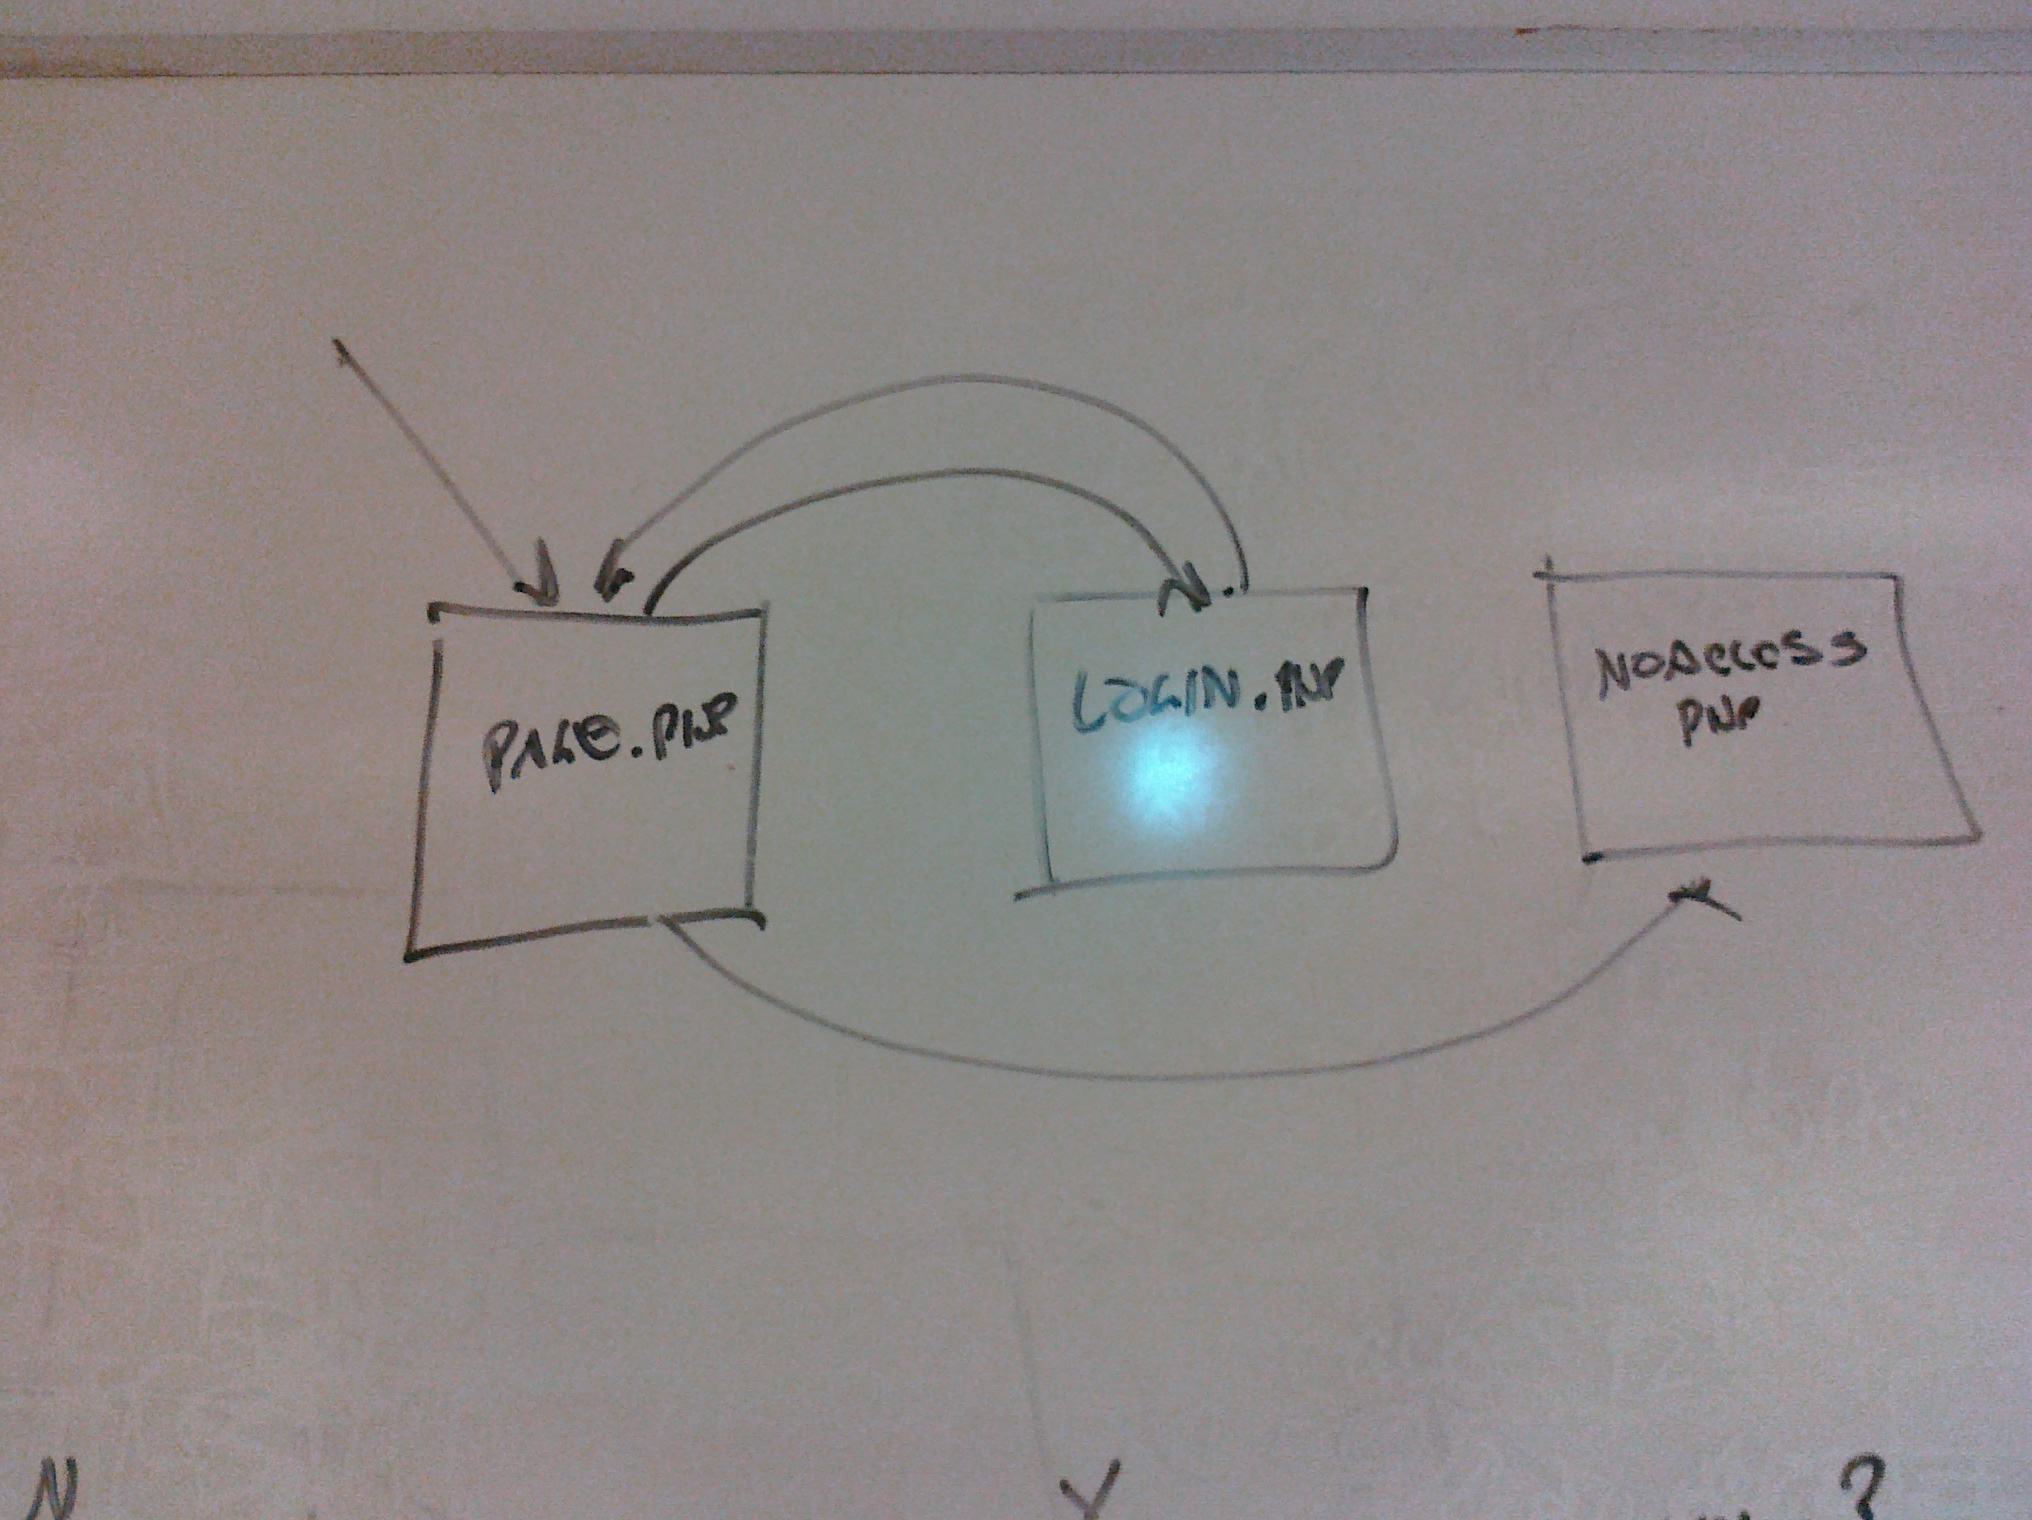 PAGE.PHP
LOGIN.PHP
NOACCESS
PHP
N
Y
?